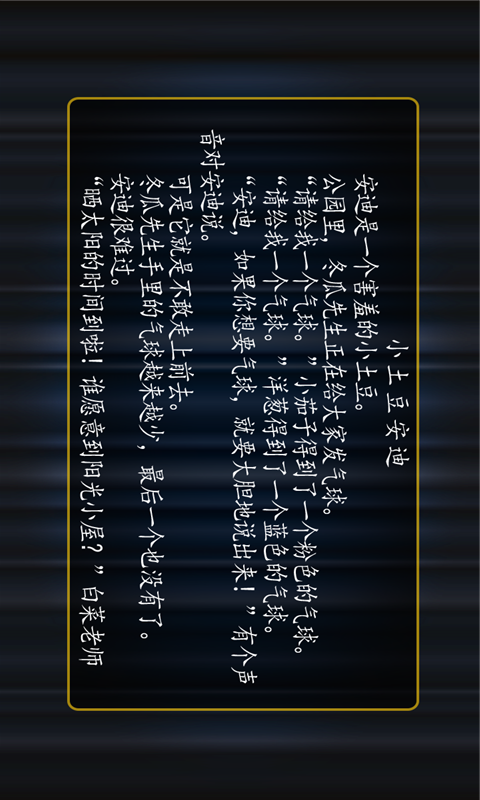 小土豆安迪
安迪是一个害羞的小土豆。
公园里，冬瓜先生正在给大家发气球。
“请给我一个气球。”小茄子得到了一个粉色的气球。
“请给我一个气球。”洋葱得到了一个蓝色的气球。
“安迪，如果你想要气球，就要大胆地说出来！”有个声
音对安迪说。
可是它就是不敢走上前去。
冬瓜先生手里的气球越来越少，最后一个也没有了。
安迪很难过。
“晒太阳的时间到啦！谁愿意到阳光小屋？”白菜老师